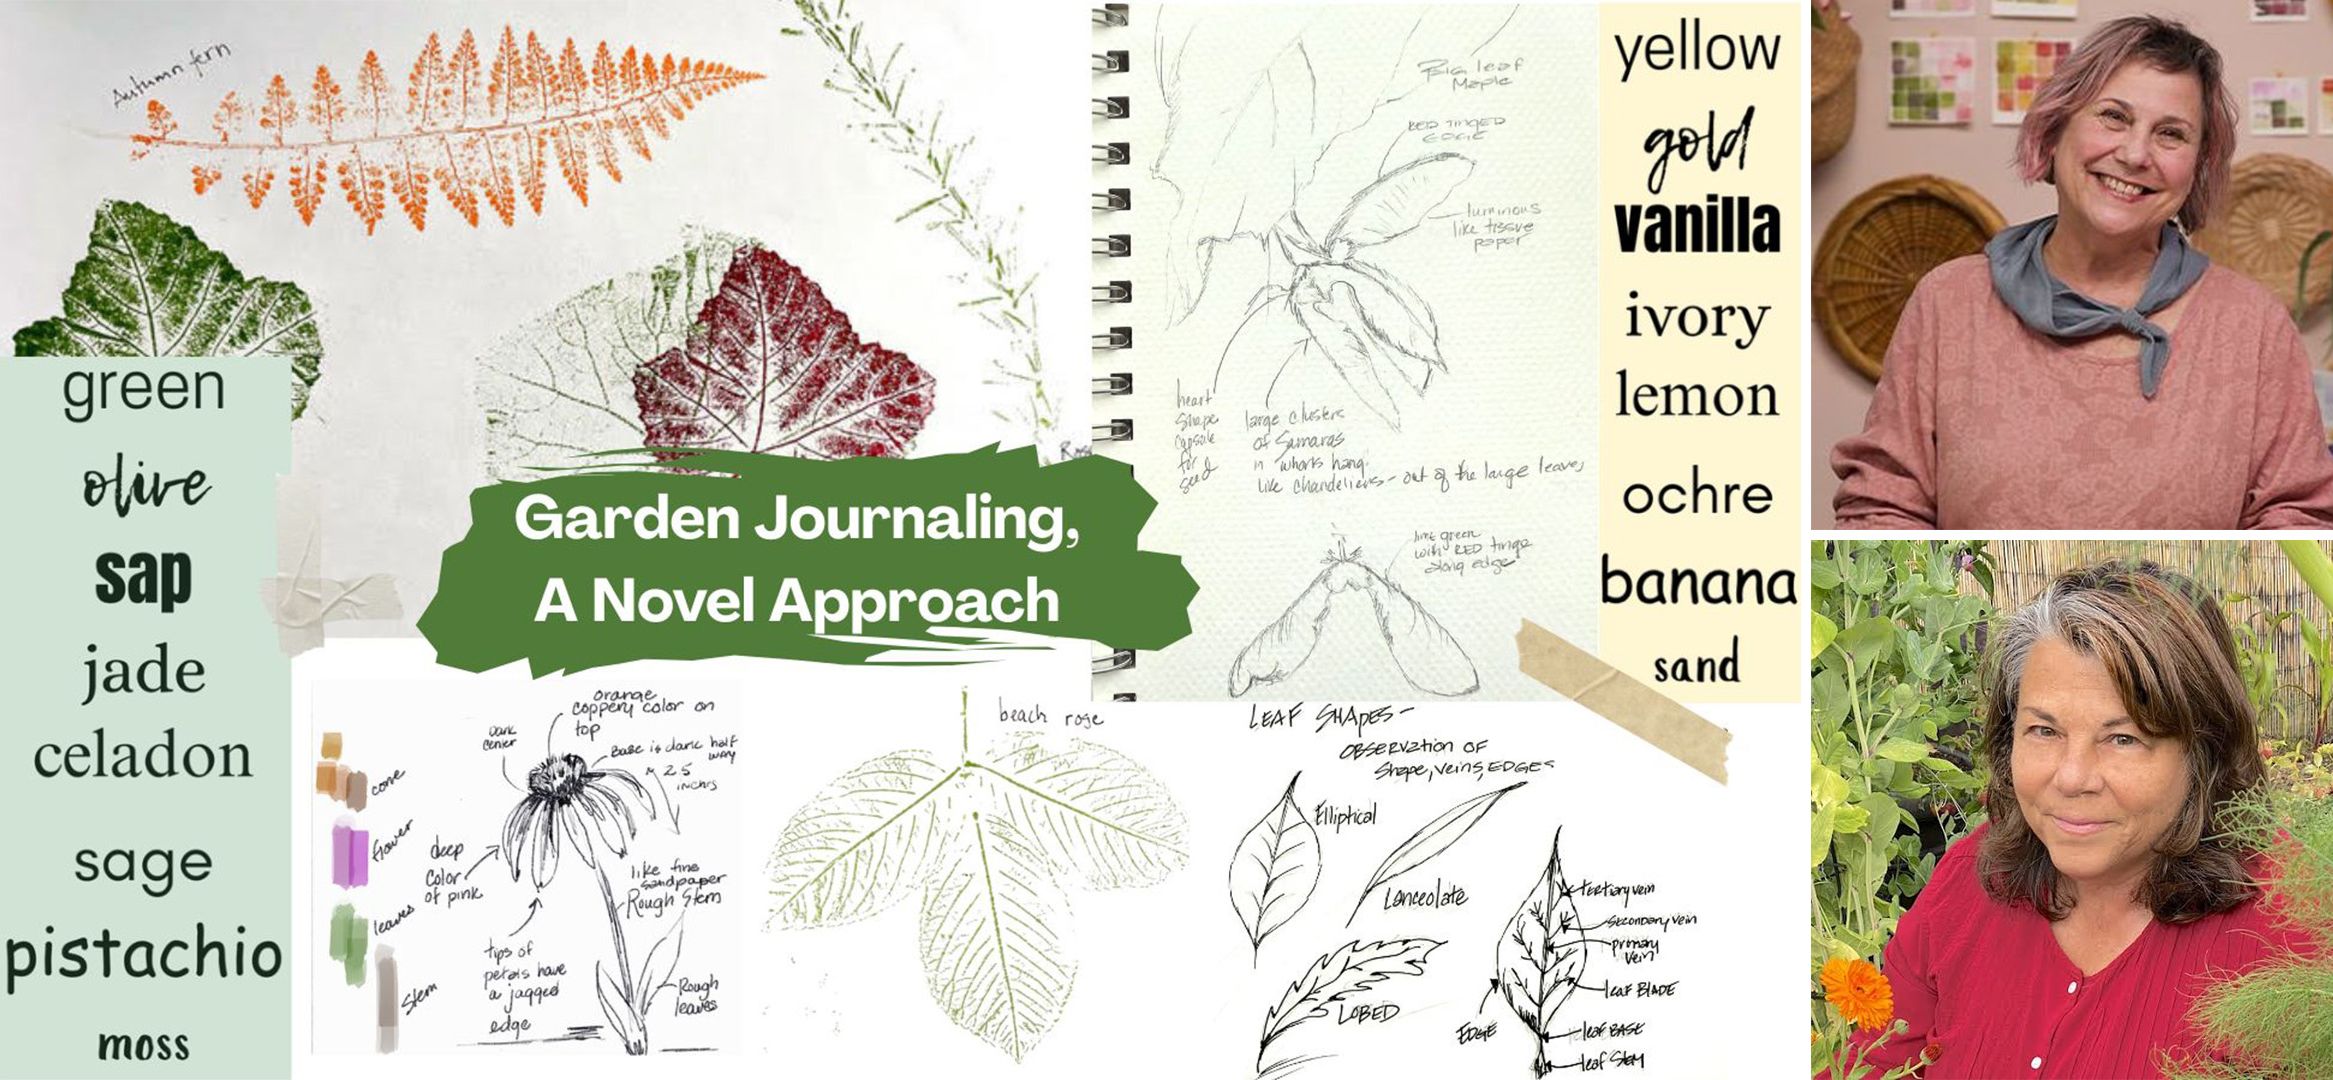 Autumn fern
green
olive
sap
jade
celadon
sage
pistachio
moss
Garden Journaling,
A Novel Approach
Big leaf
Maple
RED TINGED
EDGE
luminous
like tissue
paper
heart
shape
capsule
for
seed
large clusters
of Samaras
in whorls hang
like chandeliers - out of the large leaves
lime green
with RED tinge
along edge
yellow
gold
vanilla
ivory
lemon
ochre
banana
sand
orange
coppery color on
top
Dark
center
Base is dark half
way
2.5
inches
cone
flower
leaves
stem
deep
color
of pink
like fine
sandpaper
Rough Stem
tips of
petals have
a jagged
edge
Rough
leaves
beach rose
LEAF SHAPES-
OBSERVATION OF
Shape, veins, EDGES
Elliptical
Lanceolate
LOBED
tertiary vein
secondary vein
primary
vein
leaf BLADE
EDGE
leaf BASE
leaf Stem